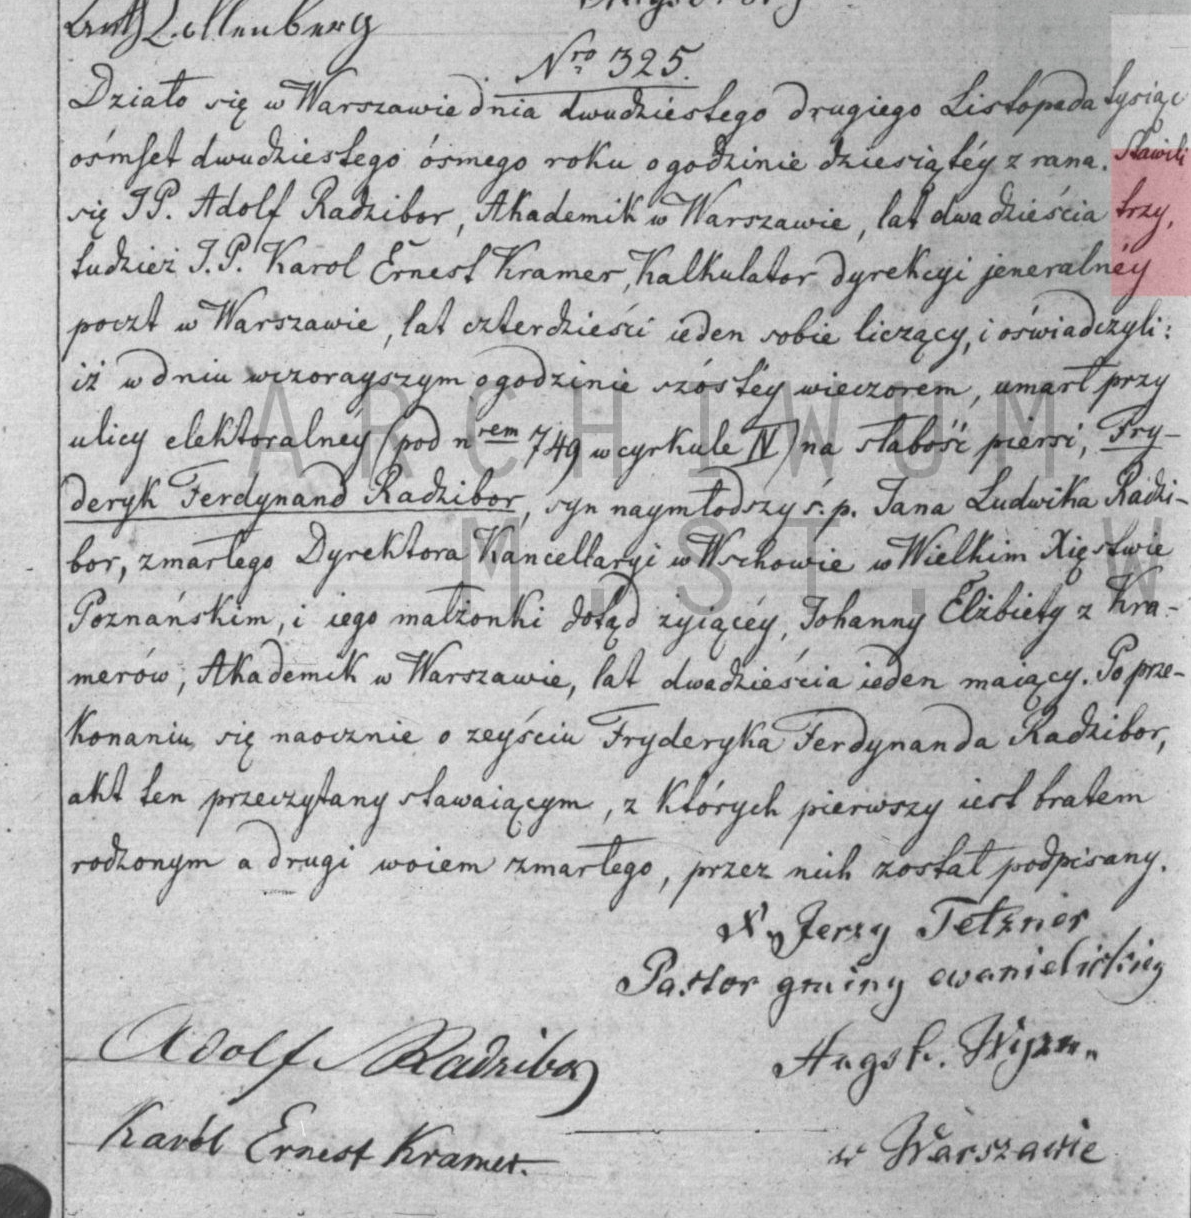 Lollenberg
Nro 325.
Działo się w Warszawie dnia dwudziestego drugiego Listopada tysiąc
ośmset dwudziestego ósmego roku o godzinie dziesiątéy z rana. Stawili
się JP. Adolf Radzibor, Akademik w Warszawie, lat dwadzieścia trzy,
tudzież J.P. Karol Ernest Kramer, Kalkulator dyrekcyi jeneralnéy
poczt w Warszawie, lat czterdzieści ieden sobie liczący, i oświadczyli:
iż w dniu wczorayszym o godzinie szóstéy wieczorem, umarł przy
ulicy elektoralnéy (pod nrem 749 w cyrkule IV) na słabość piersi, Fry-
deryk Ferdynand Radzibor, syn naymłodszy ś. p. Jana Ludwika Radzi-
bor, zmarłego Dyrektora Kancellaryi w Wschowie w Wielkim Xięstwie
Poznańskim, i iego małżonki dotąd żyiącéy, Johanny Elżbiety z Kra-
merów, Akademik w Warszawie, lat dwadzieścia ieden maiący. Po prze-
konaniu się naocznie o zeyściu Fryderyka Ferdynanda Radzibor,
akt ten przeczytany stawaiącym, z których pierwszy iest bratem
rodzonym a drugi woiem zmarłego, przez nich został podpisany.
X. Jerzy Tetzner
Pastor gminy ewanielickiey
Augsb. Wyzn.
w Warszawie
Adolf Radzibor
Karól Ernest Kramer.
ARCHIWUM
M. ST. W